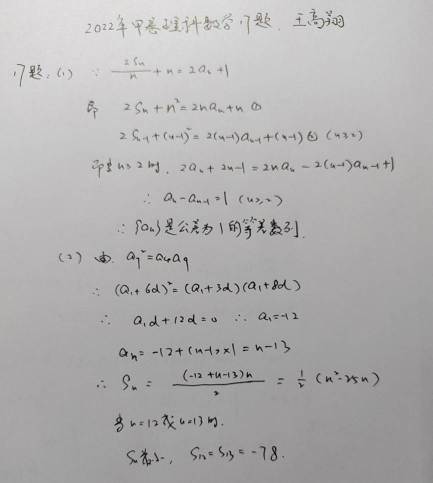 2022年甲卷理科数学17题. 王高翔
17题:(1) ∵ 2Sn/n + n = 2an+1
即 2Sn+n² = 2nan+n ①
2Sn-1+(n-1)² = 2(n-1)an-1+(n-1) ② (n≥2)
即当n≥2时, 2an+2n-1 = 2nan-2(n-1)an-1+1
∴ an-an-1=1 (n≥2)
∴ {an}是公差为1的等差数列.
(2) 由 a7²=a4a9
∴ (a1+6d)²=(a1+3d)(a1+8d)
∴ a1d+12d=0 ∴ a1=-12
an=-12+(n-1)×1=n-13
∴ Sn = (-12+n-13)n/2 = 1/2(n²-25n)
当n=12或n=13时.
Sn最小, S12=S13=-78.